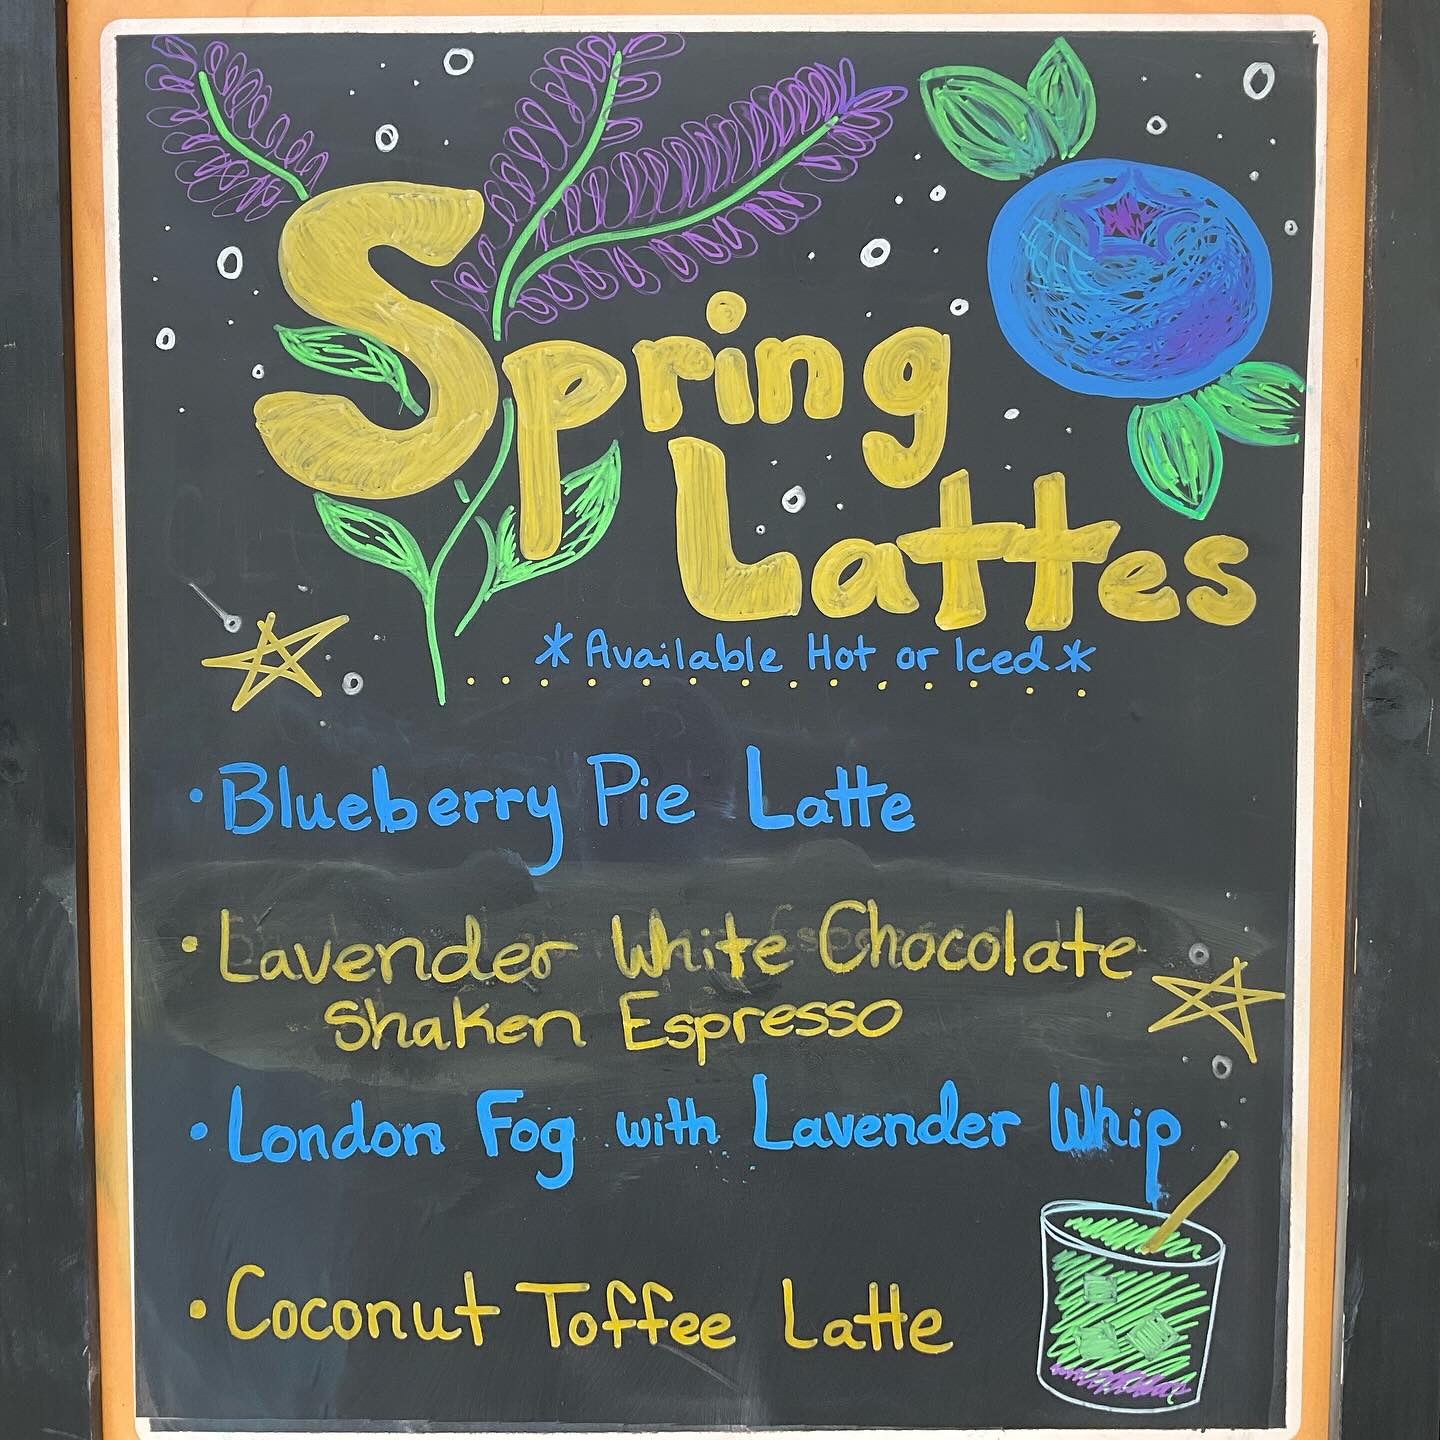 Spring
Lattes
*Available Hot or Iced*
• Blueberry Pie Latte
• Lavender White Chocolate
Shaken Espresso
• London Fog with Lavender Whip
• Coconut Toffee Latte